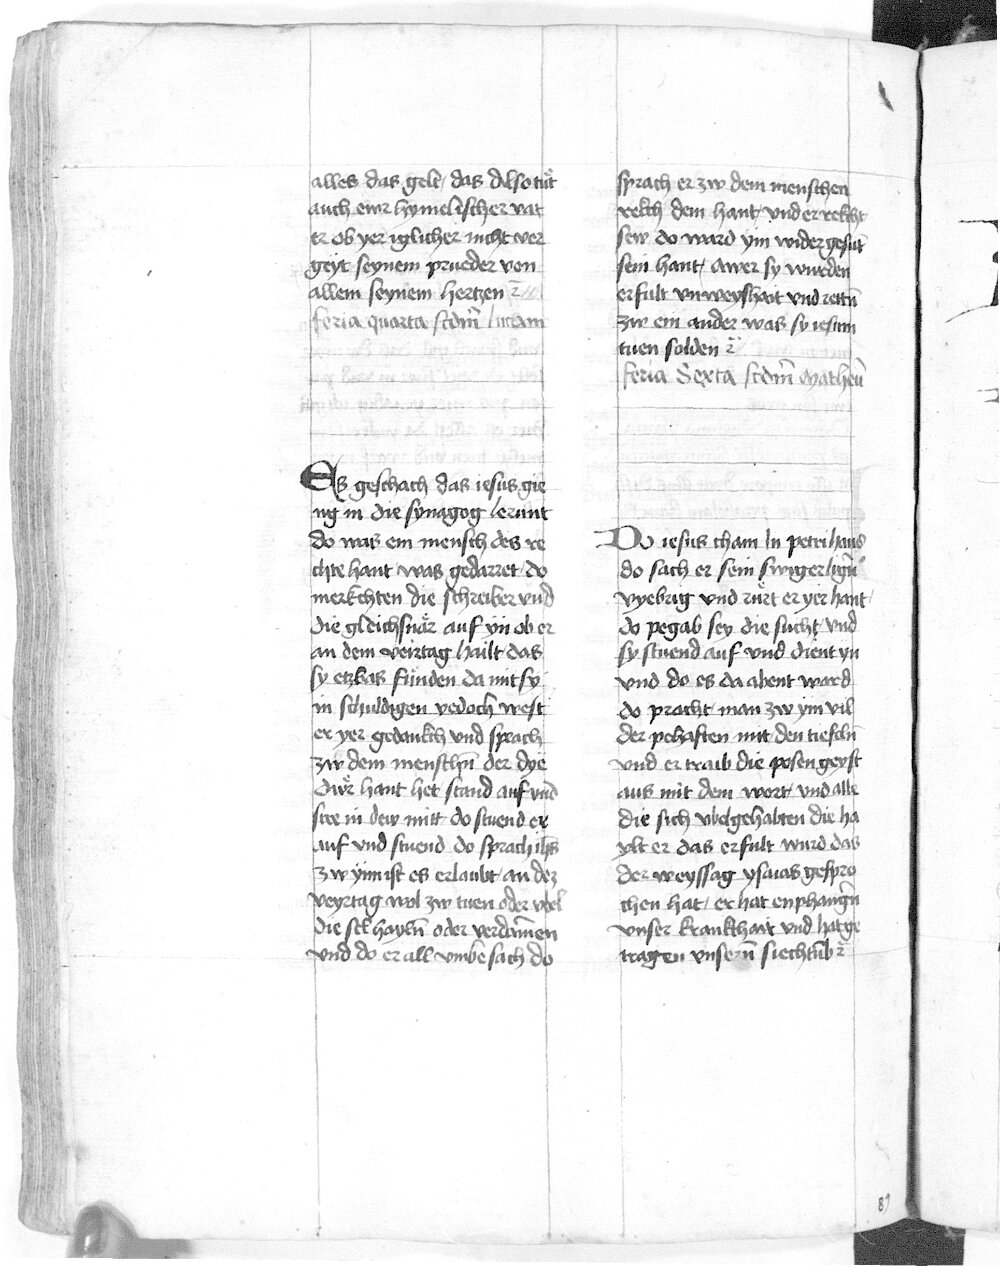 alles das gelt das Also tuͤt
auch ewr hymelischer vat
er ob yer iglicher nicht ver
geyt seynem prueder von
allem seynem hertzen
feria quarta scdm̄ lucam
Es geschach das iesus gie
ng in die synagog lerunt
do was ein mensch des re
chte hant was gedarret do
merkchten die schreiber vnd
die gleichsnaͤr auf yn ob er
an dem veirtag hailt das
sy etzbas funden da mit sy
in schuldigen yedoch west
er yer gedankch vnd sprach
zw dem menschn̄ der dye
duͤr hant het stand auf vnd
stee in dew mitt do stuend er
auf vnd stuend do sprach ihs̄
zw ynn ist es erlaubt an dez
veyrtag wol zw tuen oder vbel
die sel hayln̄ oder verdāmen
vnd do er all vmbe sach do
sprach er zw dem menschen
rekch dem hant vnd er rekcht
sew do ward ym wider gesūt
sein hant Awer sy wurden
erfult vnweyshait vnd rettn̄
zw ein ander was sy iesum
tuen solden
feria Sexta scdm̄ Matheū
Do iesus cham In petri haus
do sach er sein swiger lign̄
vyebrig vnd ruͤrt er yer hant
do pegab sey die sucht vnd
sy stuend auf vnd dient yn
vnd do es da abent ward
do pracht man zw ym vil
der pehaften mit den tiefeln̄
vnd er traib die posen geyst
aus mit dem wort vnd alle
die sich vbel gehabten die ha
ylt er das erfult wurd das
der weyssag ysaias gespro
chen hat er hat enphangn̄
vnser krankchait vnd hat ge
tragen vnsern̄ siechtūb
87